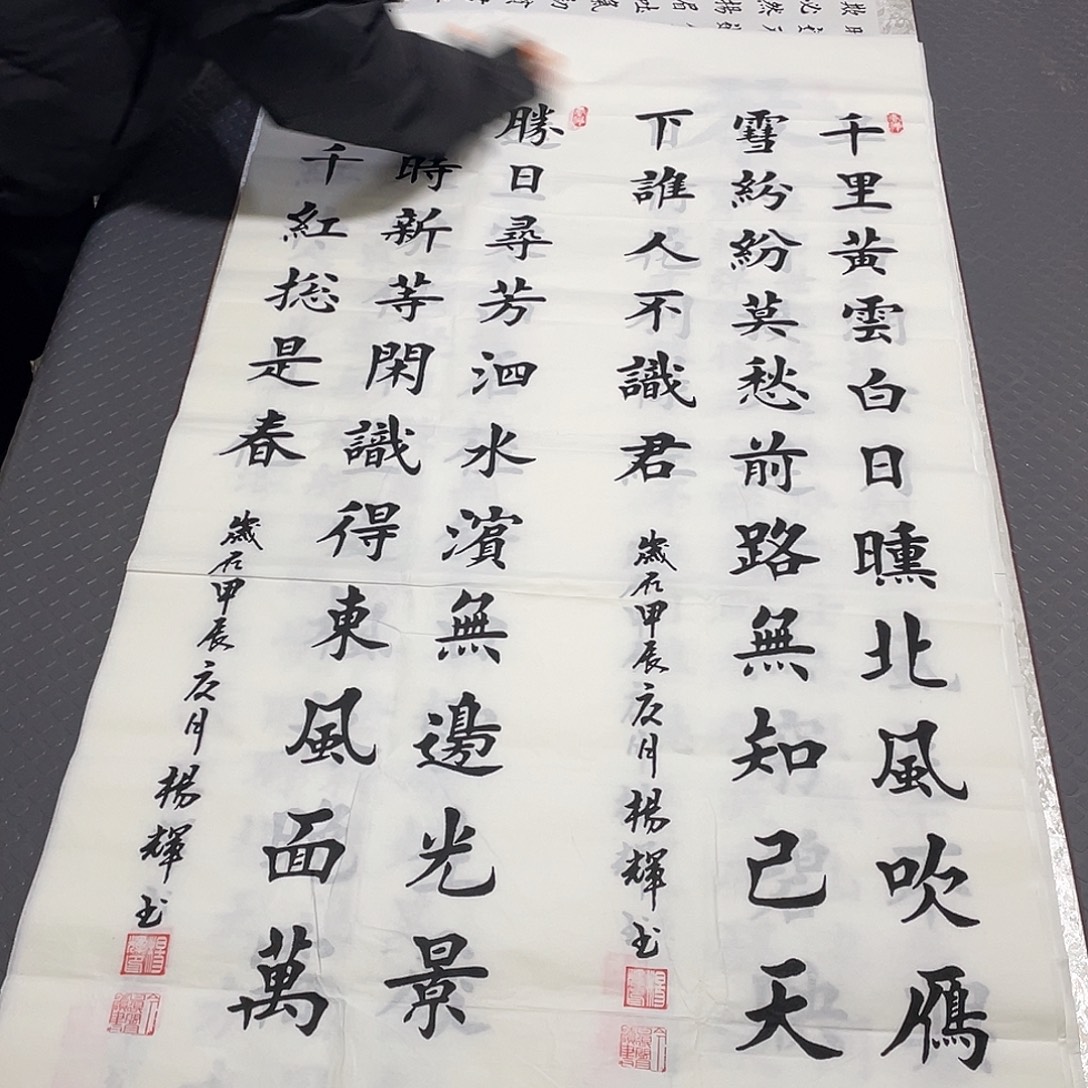 千里黄雲白日曛北風吹鴈
雪紛紛莫愁前路無知己天
下誰人不識君
歲在甲辰夏月楊輝书
勝日尋芳泗水濱無邊光景
時新等閑識得東風面萬
千紅捴是春
歲在甲辰夏月楊輝书